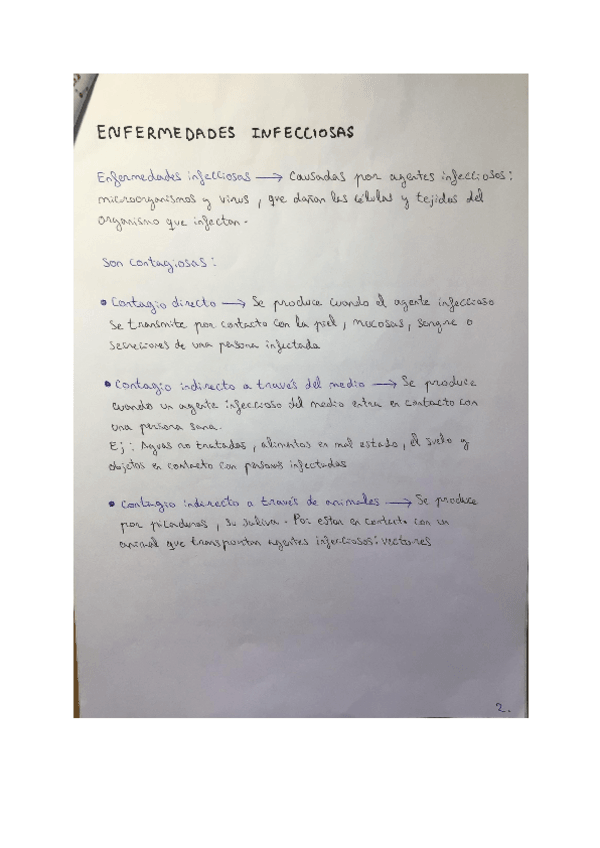 ENFERMEDADES INFECCIOSAS
Enfermedades infecciosas → Causadas por agentes infecciosos:
microorganismos y virus, que dañan las células y tejidos del
organismo que infectan.
Son contagiosas:
• Contagio directo → Se produce cuando el agente infeccioso
se transmite por contacto con la piel, mucosas, sangre o
secreciones de una persona infectada
• Contagio indirecto a través del medio → Se produce
cuando un agente infeccioso del medio entra en contacto con
una persona sana.
Ej: Aguas no tratadas, alimentos en mal estado, el suelo y
objetos en contacto con personas infectadas
• Contagio indirecto a través de animales → Se produce
por picaduras, su saliva. Por estar en contacto con un
animal que transportan agentes infecciosos: vectores
2.